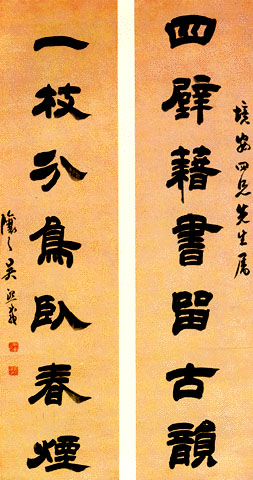 境安四兄先生属
四壁藉書留古韻
一枝分鳥臥春煙
讓之吳熙載